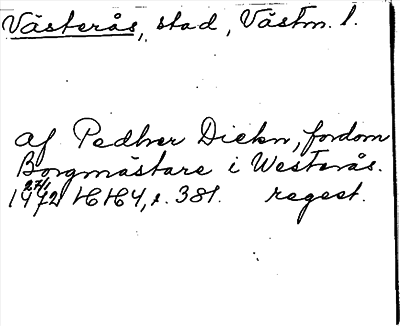 Västerås, stad, Västm. l.
af Pedher Diekn, fordom
Borgmästare i Westerås.
27/1
1472 HH4, s. 381. regest.